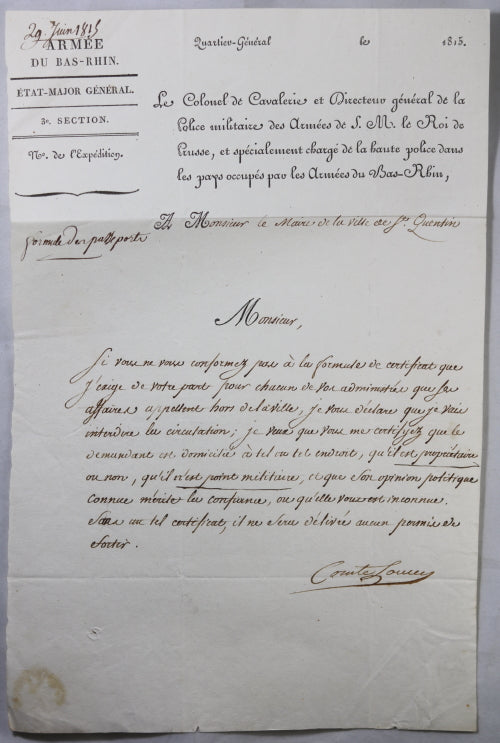 29 Juin 1815
ARMÉE
DU BAS-RHIN.
ÉTAT-MAJOR GÉNÉRAL.
3e. SECTION.
No. de l'Expédition.
Quartier-Général le 1815.
Le Colonel de Cavalerie et Directeur général de la
Police militaire des Armées de S. M. le Roi de
Prusse, et spécialement chargé de la haute police dans
les pays occupés par les Armées du Bas-Rhin,
A Monsieur le Maire de la ville de St. Quentin
formule des passeports
Monsieur,
Si vous ne vous conformez pas à la formule de certificat que
j'exige de votre part pour chacun de vos administrés que ses
affaires appellent hors de la ville, je vous déclare que je vais
interdire la circulation; je veux que vous me certifiyez que le
demandant est domicilié à tel ou tel endroit, qu'il est propriétaire
ou non, qu'il n'est point militaire, et que son opinion politique
connue mérite la confiance, ou qu'elle vous est inconnue.
Sans un tel certificat, il ne sera délivré aucun permis de
sortir.
Comte